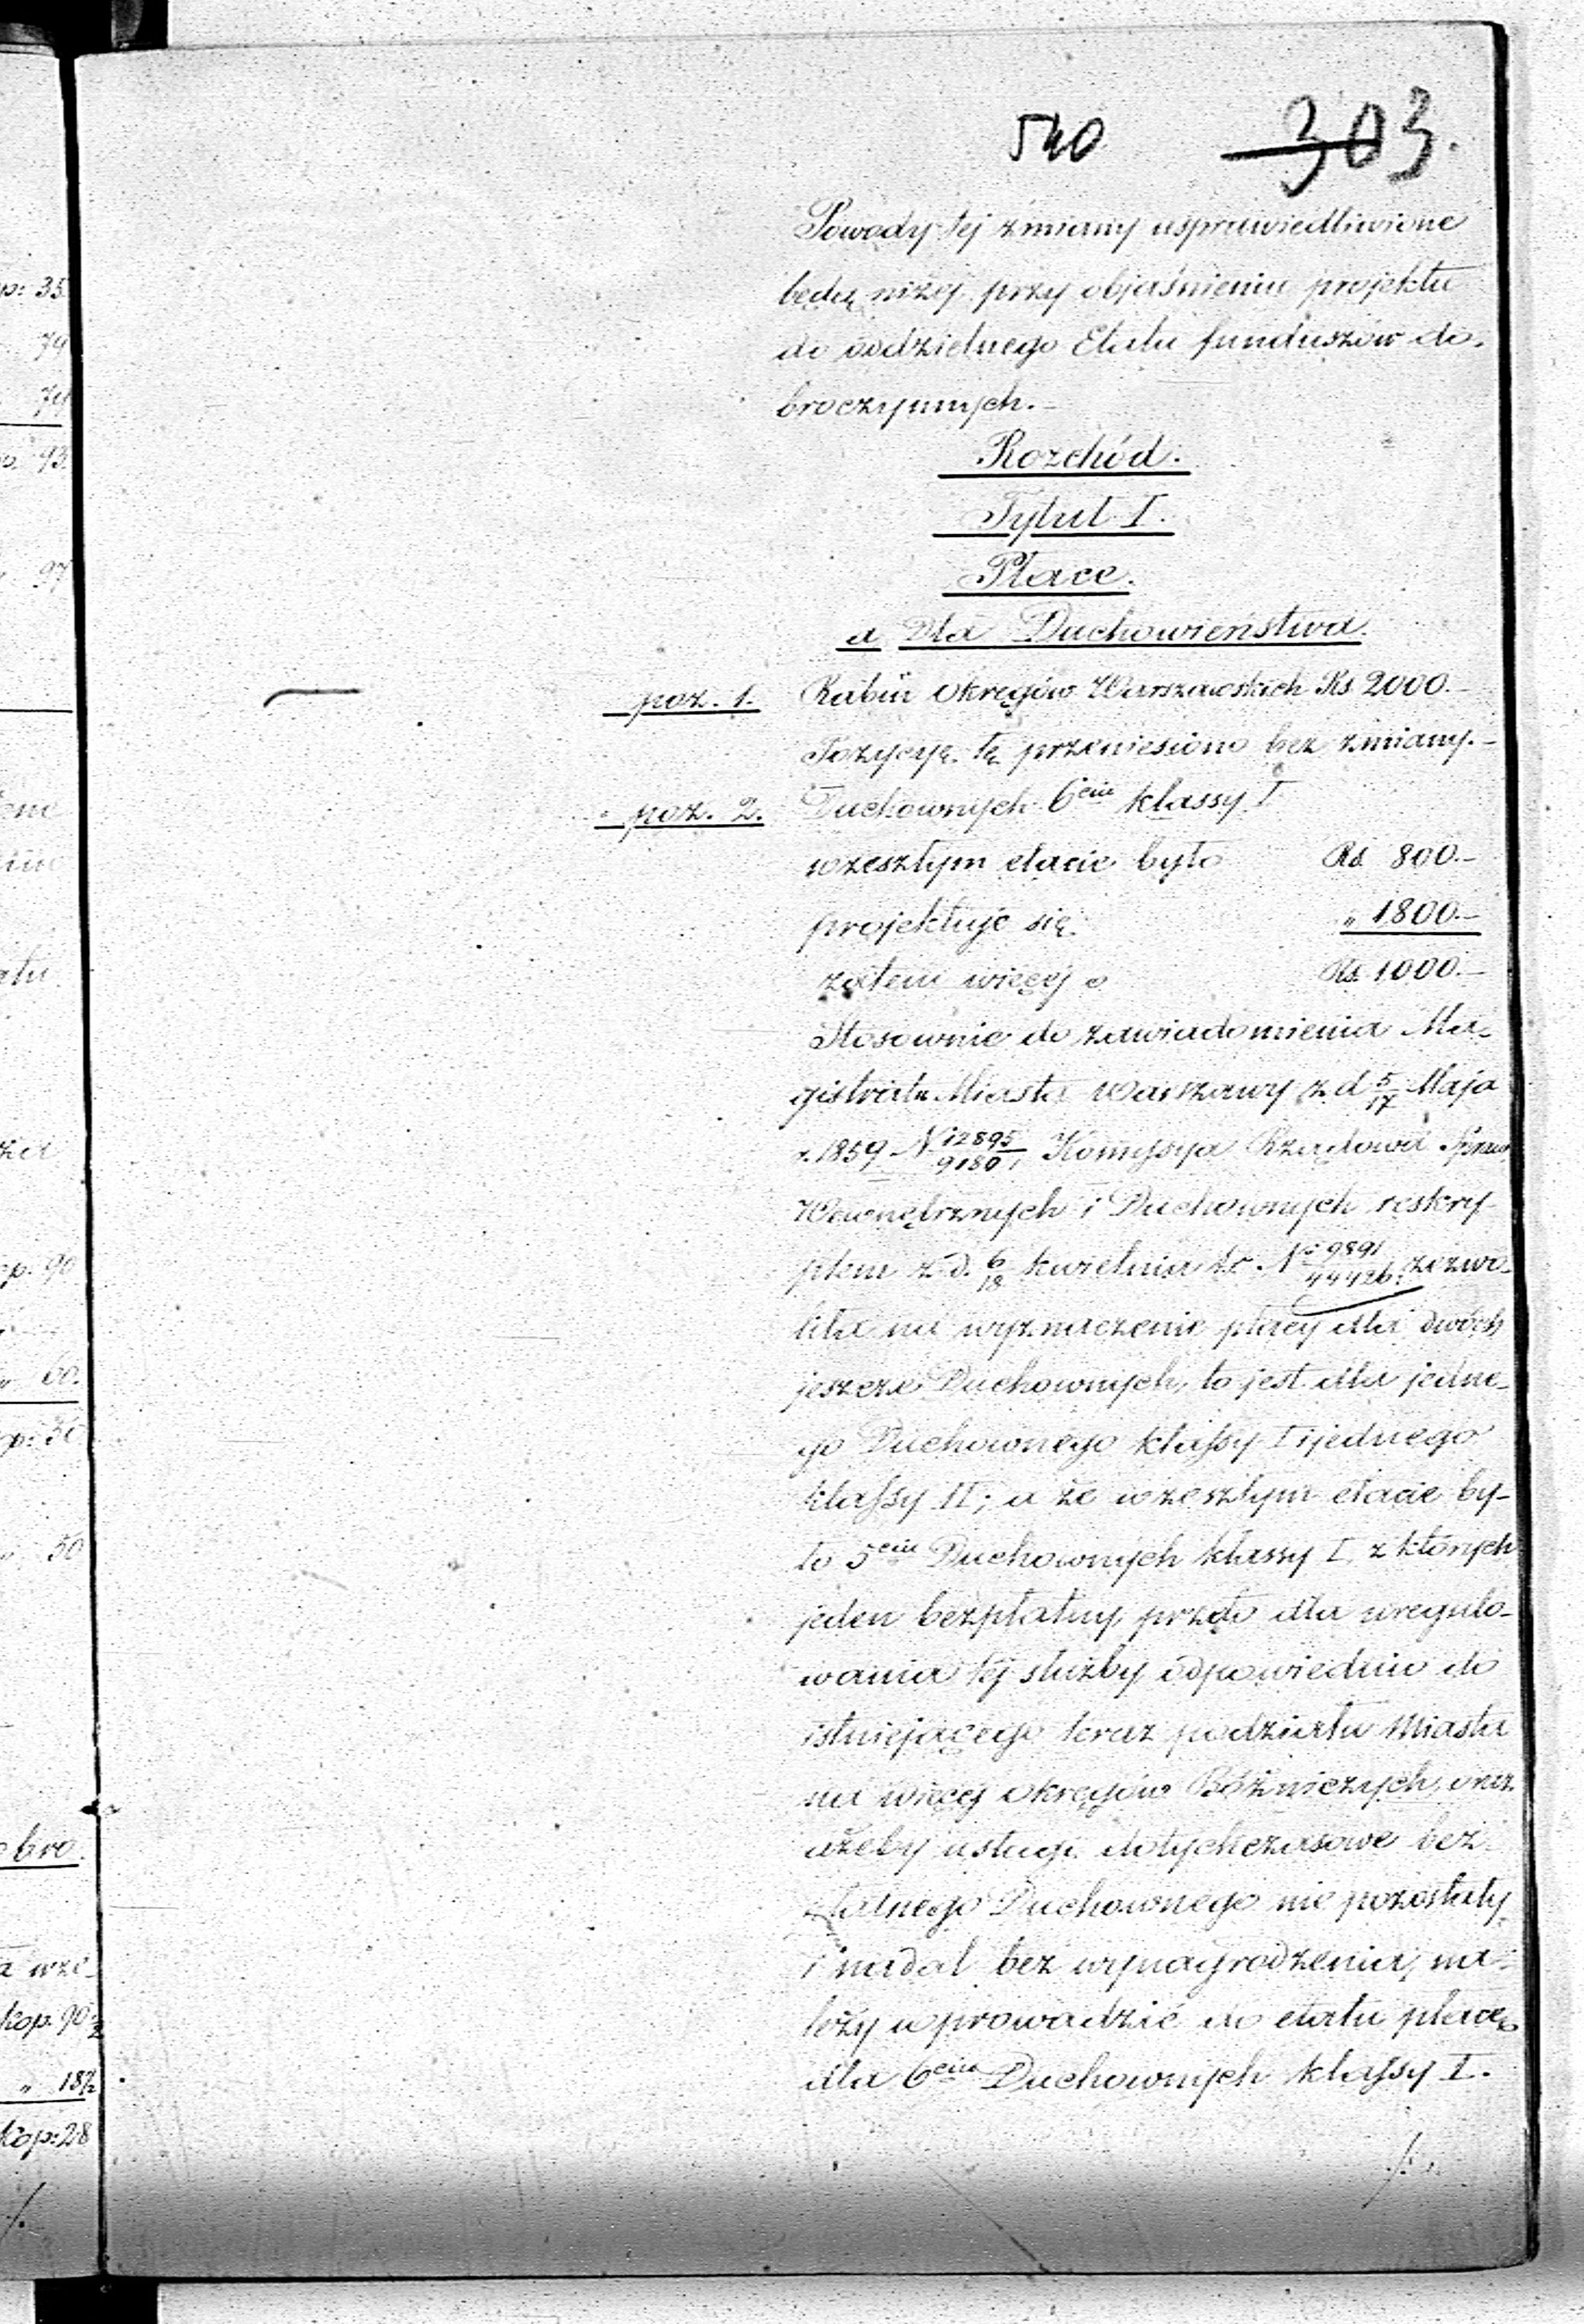 540 303.
Powody tej zmiany usprawiedliwione
będą niżej przy objaśnieniu projektu
do oddzielnego Etatu funduszów do-
broczynnych.-
Rozchód.
Tytuł I.
Płace.
a Dla Duchowieństwa.
poz. 1. Rabin Okręgów Warszawskich Rs 2000.-
Pozycyę tę przeniesiono bez zmiany.-
poz. 2. Duchownych 6ciu klassy I
w zeszłym etacie było Rs 800.-
projektuje się „ 1800.-
zatem więcej o Rs. 1000.-
Stosownie do zawiadomienia Ma-
gistratu Miasta Warszawy z d 5/17 Maja
r. 1859 N 12895/9180, Kommissya Rządowa Spraw
Wewnętrznych i Duchownych reskry-
ptem z d. 6/18 kwietnia t.r. No 9891/44426. zezwo-
liła na wyznaczenie płacy dla dwóch
jeszcze Duchownych, to jest dla jedne-
go Duchownego klassy I i jednego
klassy II; a że w zeszłym etacie by-
ło 5ciu Duchownych klassy I, z których
jeden bezpłatny, przeto dla uregulo-
wania tej służby odpowiednio do
istniejącego teraz podziału Miasta
na więcej okręgów Bóżniczych, oraz
ażeby usługi dotychczasowe bez-
płatnego Duchownego nie pozostały
i nadal bez wynagrodzenia, na-
leży wprowadzić do etatu płacę
dla 6ciu Duchownych klassy I.
./.
p: 35
79
79
93
97
p. 90
60.
50
bro.
a wze-
Kop. 90½
„ 18½
Kop: 28
/.